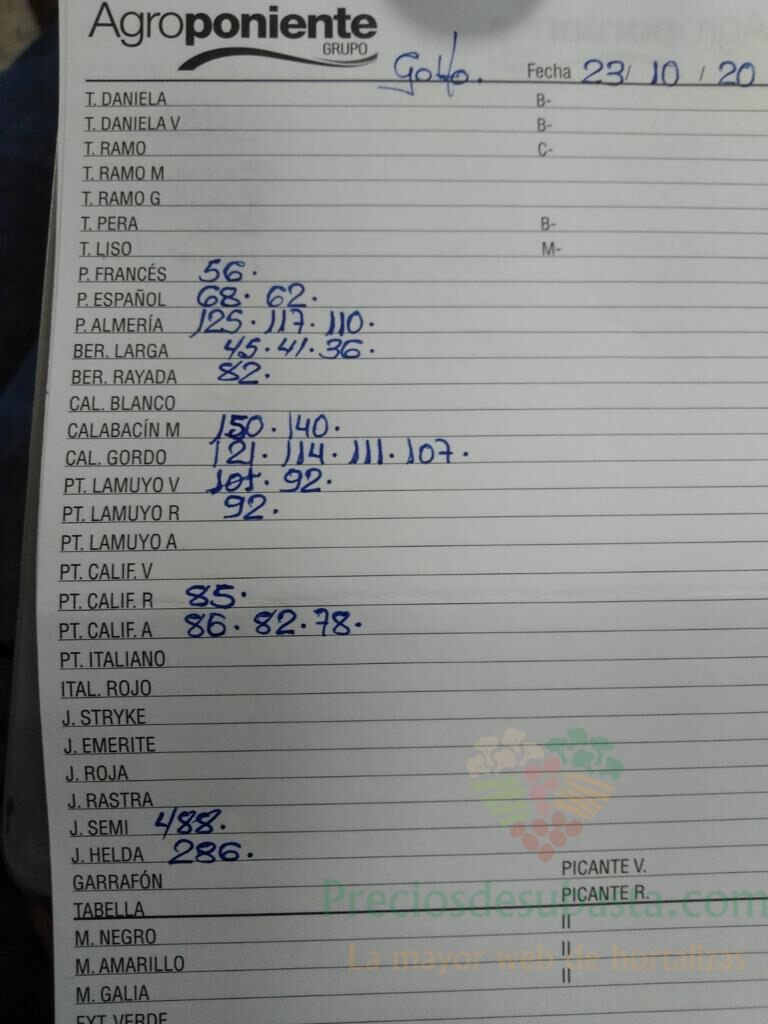 Agroponiente
GRUPO
Golfo. Fecha 23/ 10 / 20
T. DANIELA B-
T. DANIELA V B-
T. RAMO C-
T. RAMO M
T. RAMO G
T. PERA B-
T. LISO M-
P. FRANCÉS 56.
P. ESPAÑOL 68. 62.
P. ALMERÍA 125. 117. 110.
BER. LARGA 45. 41. 36.
BER. RAYADA 82.
CAL. BLANCO
CALABACÍN M 150. 140.
CAL. GORDO 121. 114. 111. 107.
PT. LAMUYO V 101. 92.
PT. LAMUYO R 92.
PT. LAMUYO A
PT. CALIF. V
PT. CALIF. R 85.
PT. CALIF. A 86. 82. 78.
PT. ITALIANO
ITAL. ROJO
J. STRYKE
J. EMERITE
J. ROJA
J. RASTRA
J. SEMI 488.
J. HELDA 286.
GARRAFÓN PICANTE V.
TABELLA PICANTE R.
Preciosdesubasta.com
M. NEGRO II
M. AMARILLO II
La mayor web de hortalizas
M. GALIA II
EXT. VERDE